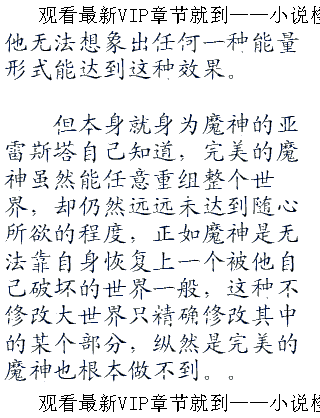 观看最新VIP章节就到——小说检
他无法想象出任何一种能量
形式能达到这种效果。
但本身就身为魔神的亚
雷斯塔自己知道，完美的魔
神虽然能任意重组整个世
界，却仍然远远未达到随心
所欲的程度，正如魔神是无
法靠自身恢复上一个被他自
己破坏的世界一般，这种不
修改大世界只精确修改其中
的某个部分，纵然是完美的
魔神也根本做不到。。
观看最新VIP章节就到——小说检